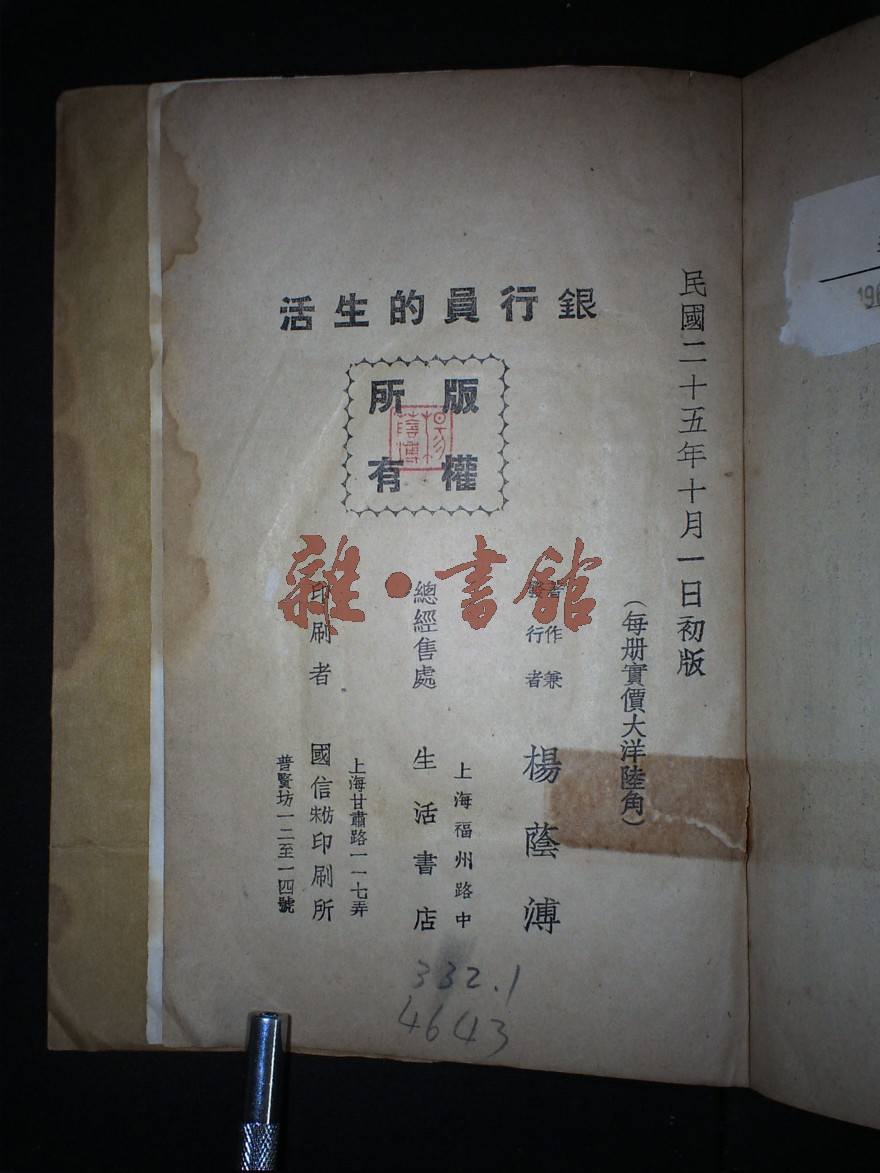 民國二十五年十月一日初版
(每册實價大洋陸角)
銀行員的生活
版權所有
楊蔭溥
著作兼發行者
楊蔭溥
總經售處
上海福州路中
生活書店
印刷者
上海甘肅路一一七弄
國信印刷所
普賢坊一二至一四號
雜·書館
332.1
4643